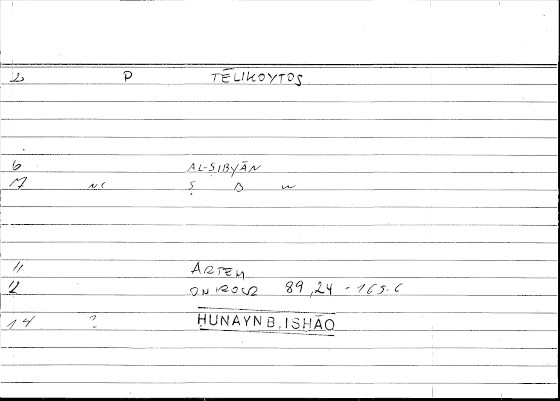 2 P TĒLIKOYTOS
6 AL-ṢIBYĀN
17 NC Ṣ B W
11 ARTEM
12 ONIROCR 89,24 - 165.6
14 ? ḤUNAYN B. ISḤĀQ